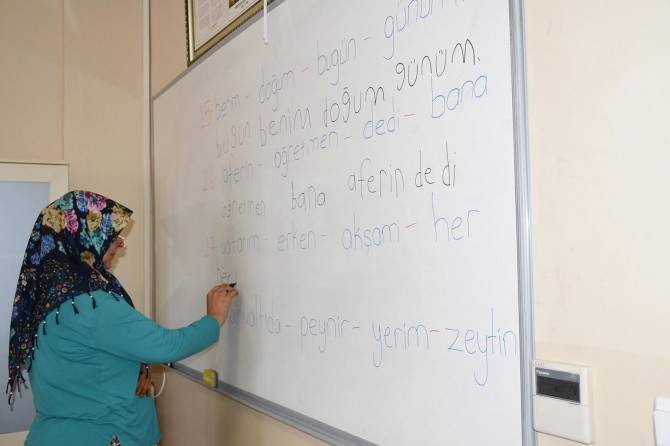 15 benim - doğum - bugün - günüm.
bugün benim doğum günüm.
16 aferin - öğretmen - dedi - bana
öğretmen bana aferin dedi
17 yatarım - erken - akşam - her
her
peynir - yerim - zeytin